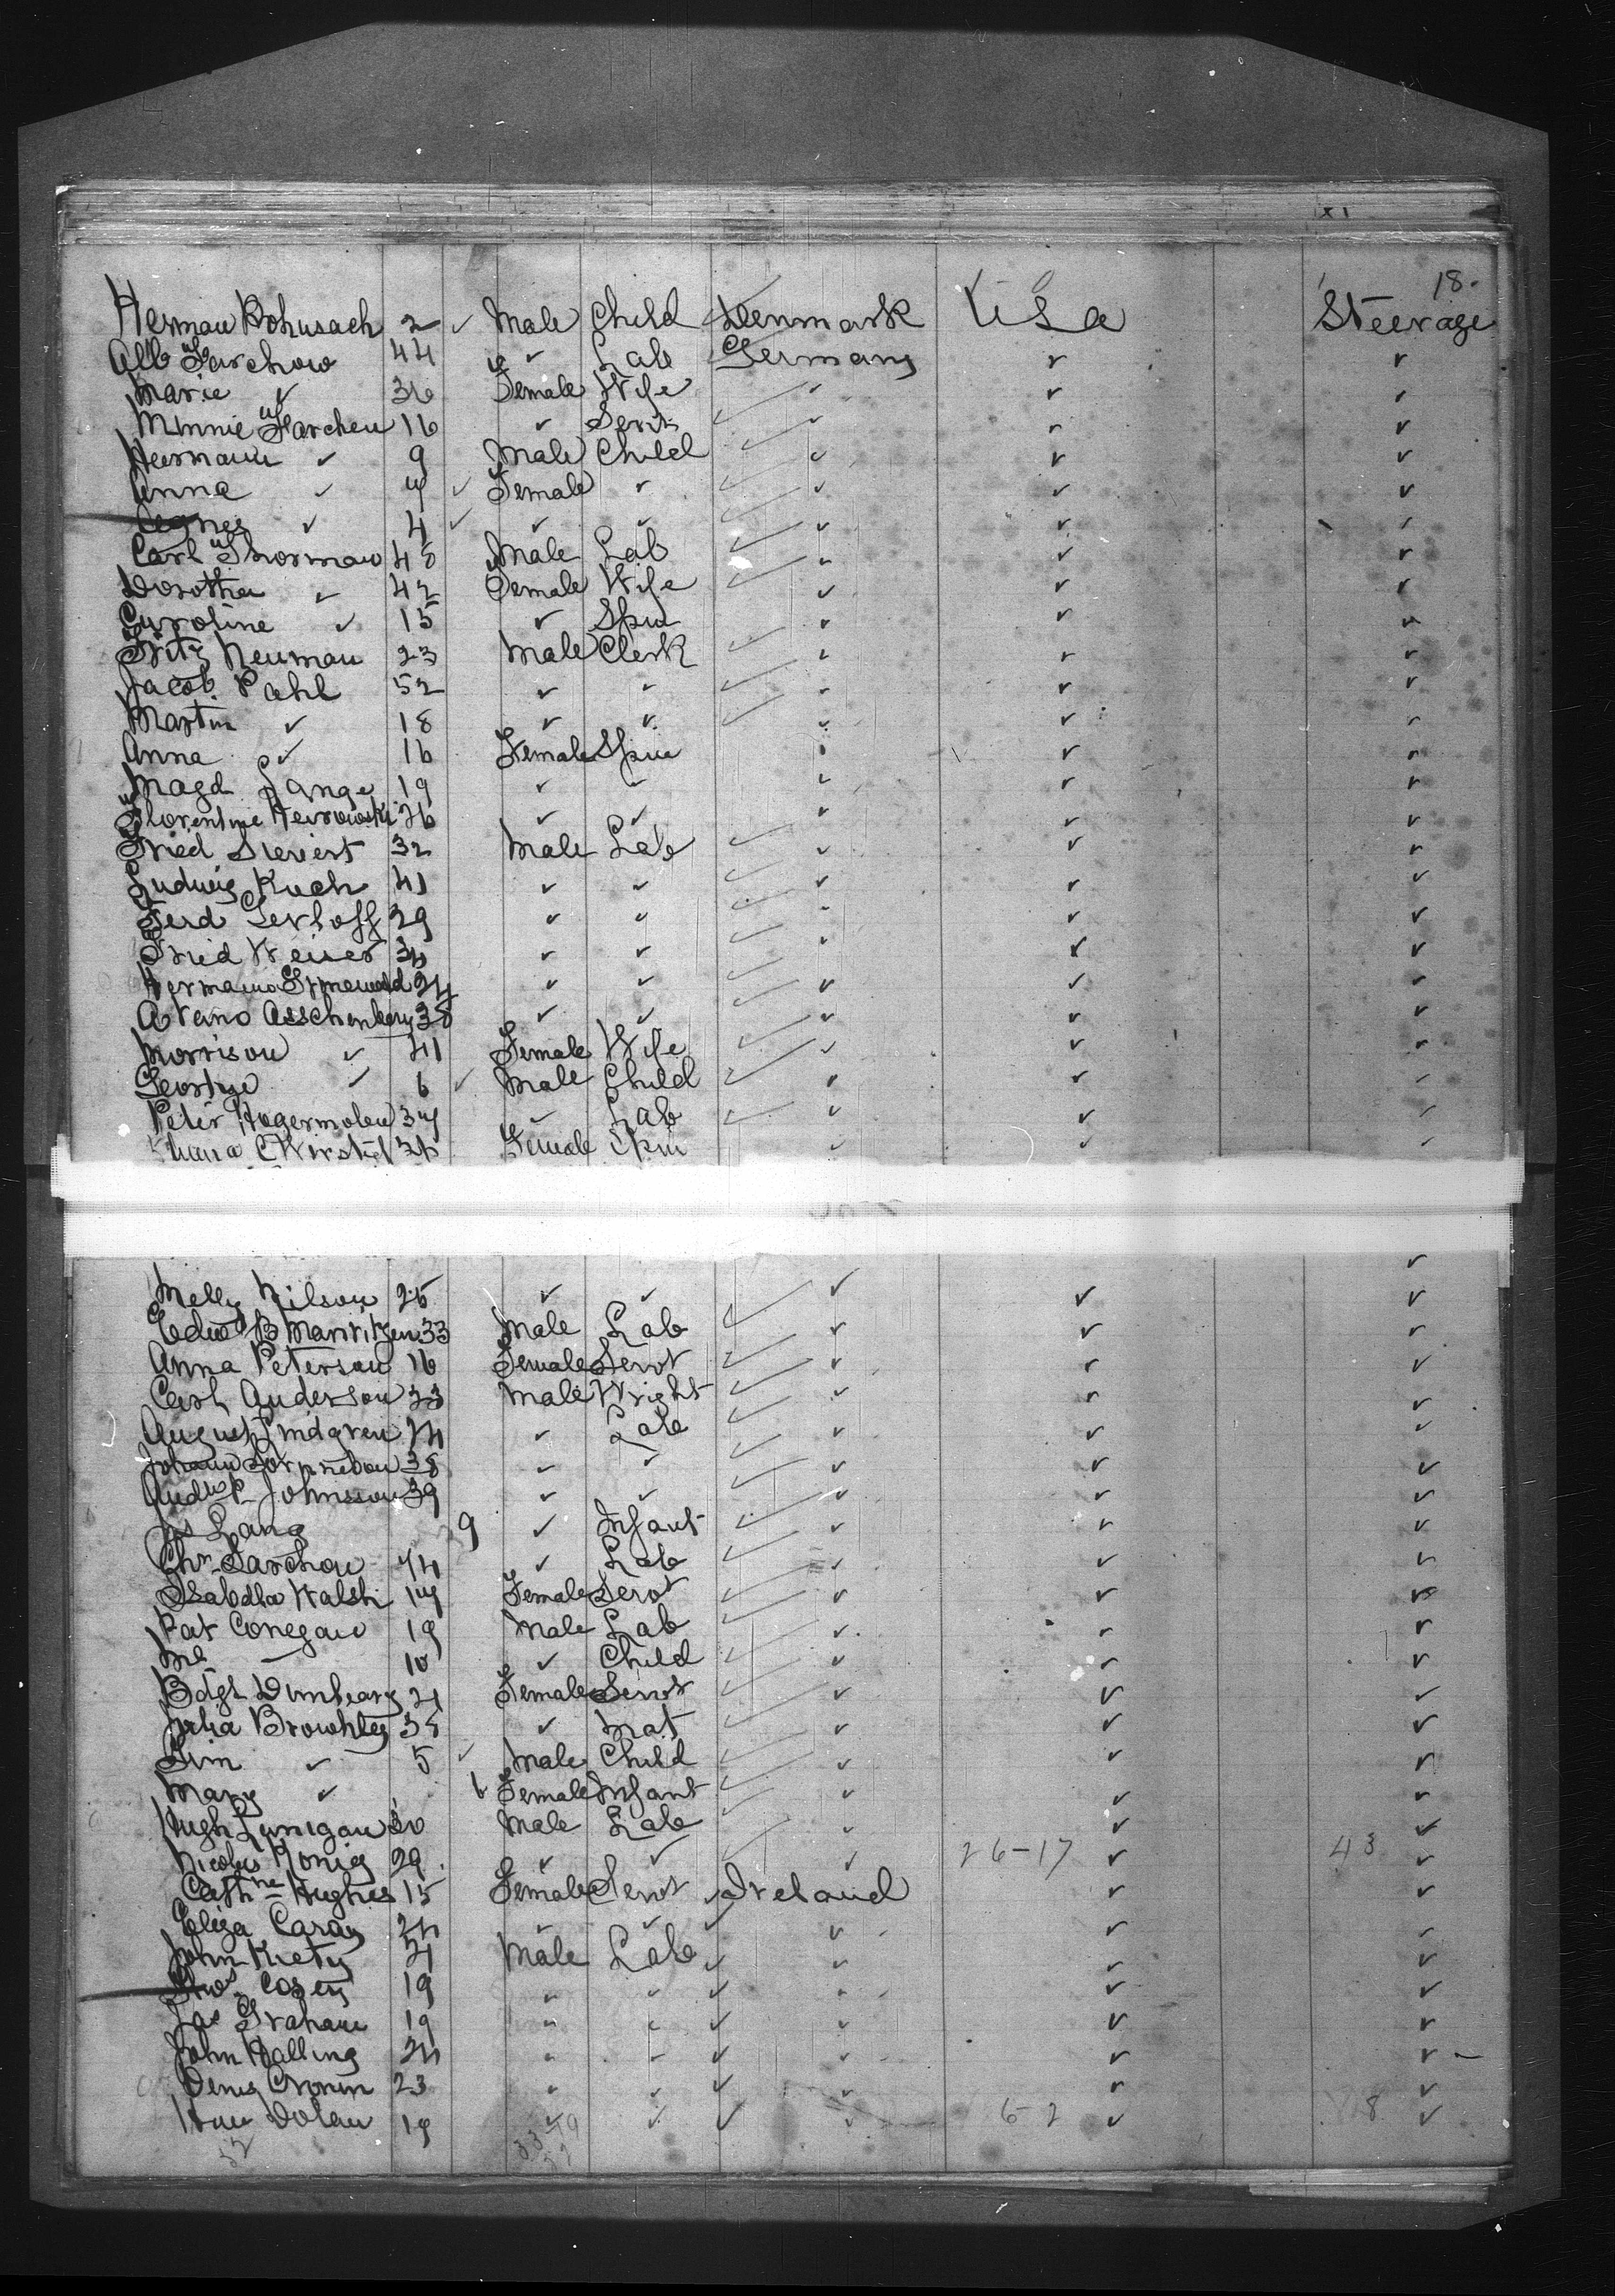 18.
Herman Bohnsach 2 ✓ Male Child Denmark USa Steerage
Alb Farchow 44 ✓ Lab Germany ✓ ✓
Marie ✓ 36 Female Wife ✓ ✓ ✓
Minnie Farchen 16 ✓ Servt ✓ ✓ ✓
Hermann ✓ 9 Male Child ✓ ✓ ✓
Anna ✓ 7 ✓ Female ✓ ✓ ✓ ✓
Agnes ✓ 4 ✓ ✓ ✓ ✓ ✓ ✓
Carl Thorman 48 Male Lab ✓ ✓ ✓
Dorothea ✓ 42 Female Wife ✓ ✓ ✓
Caroline ✓ 15 ✓ Spin ✓ ✓ ✓
Fritz Neuman 23 Male Clerk ✓ ✓ ✓
Jacob Pahl 52 ✓ ✓ ✓ ✓ ✓
Martin ✓ 18 ✓ ✓ ✓ ✓ ✓
Anna ✓ 16 Female Spin ✓ ✓ ✓
Magd Lange 19 ✓ ✓ ✓ ✓ ✓
Florentine 26 ✓ ✓ ✓ ✓ ✓
Fried Sievert 32 Male Lab ✓ ✓ ✓
Ludwig Kuch 41 ✓ ✓ ✓ ✓ ✓
Ferd Gerhoff 29 ✓ ✓ ✓ ✓ ✓
Fried Weiser 34 ✓ ✓ ✓ ✓ ✓
Hermann Grunewald 24 ✓ ✓ ✓ ✓ ✓
Asschenberg 38 ✓ ✓ ✓ ✓ ✓
Morrison ✓ 41 Female Wife ✓ ✓ ✓
George ✓ 6 ✓ Male Child ✓ ✓ ✓
Peter Hagermolen 37 ✓ Lab ✓ ✓ ✓
Female Spin ✓ ✓ ✓
Melly Nilson 25 ✓ ✓ ✓ ✓ ✓
Edwd B Mauritzen 33 Male Lab ✓ ✓ ✓
Anna Peterson 16 Female Servt ✓ ✓ ✓
Carl Anderson 33 Male Wright ✓ ✓ ✓
August Lindgren 24 ✓ Lab ✓ ✓ ✓
Johann 38 ✓ ✓ ✓ ✓ ✓
Andw P Johnsson 39 ✓ ✓ ✓ ✓ ✓
Js Lang 9 ✓ Infant ✓ ✓ ✓
Chr Farchow 74 ✓ Lab ✓ ✓ ✓
Isabella Walsh 17 Female Servt ✓ ✓ ✓
Pat Conegan 19 Male Lab ✓ ✓ ✓
Ml — 10 ✓ Child ✓ ✓ ✓
Bdgt Dunleavy 21 Female Servt ✓ ✓ ✓
Julia Browhley 35 ✓ Mat ✓ ✓ ✓
Tim ✓ 5 ✓ Male Child ✓ ✓ ✓
Mary ✓ 6 Female Infant ✓ ✓ ✓
Hugh Lunigan 30 Male Lab ✓ ✓ ✓
Nicolus Konig 29 ✓ ✓ ✓ 26-17 ✓ 43 ✓
Cathne Hughes 15 Female Servt Ireland ✓ ✓
Eliza Caray 24 ✓ ✓ ✓ ✓ ✓
John Kiety 21 Male Lab ✓ ✓ ✓
Thos Casey 19 ✓ ✓ ✓ ✓ ✓
Jas Graham 19 ✓ ✓ ✓ ✓ ✓
John Halling 24 ✓ ✓ ✓ ✓ ✓
Denis Cronin 23 ✓ ✓ ✓ ✓ ✓
Dolan 19 ✓ ✓ ✓ 6-2 ✓ 8 ✓